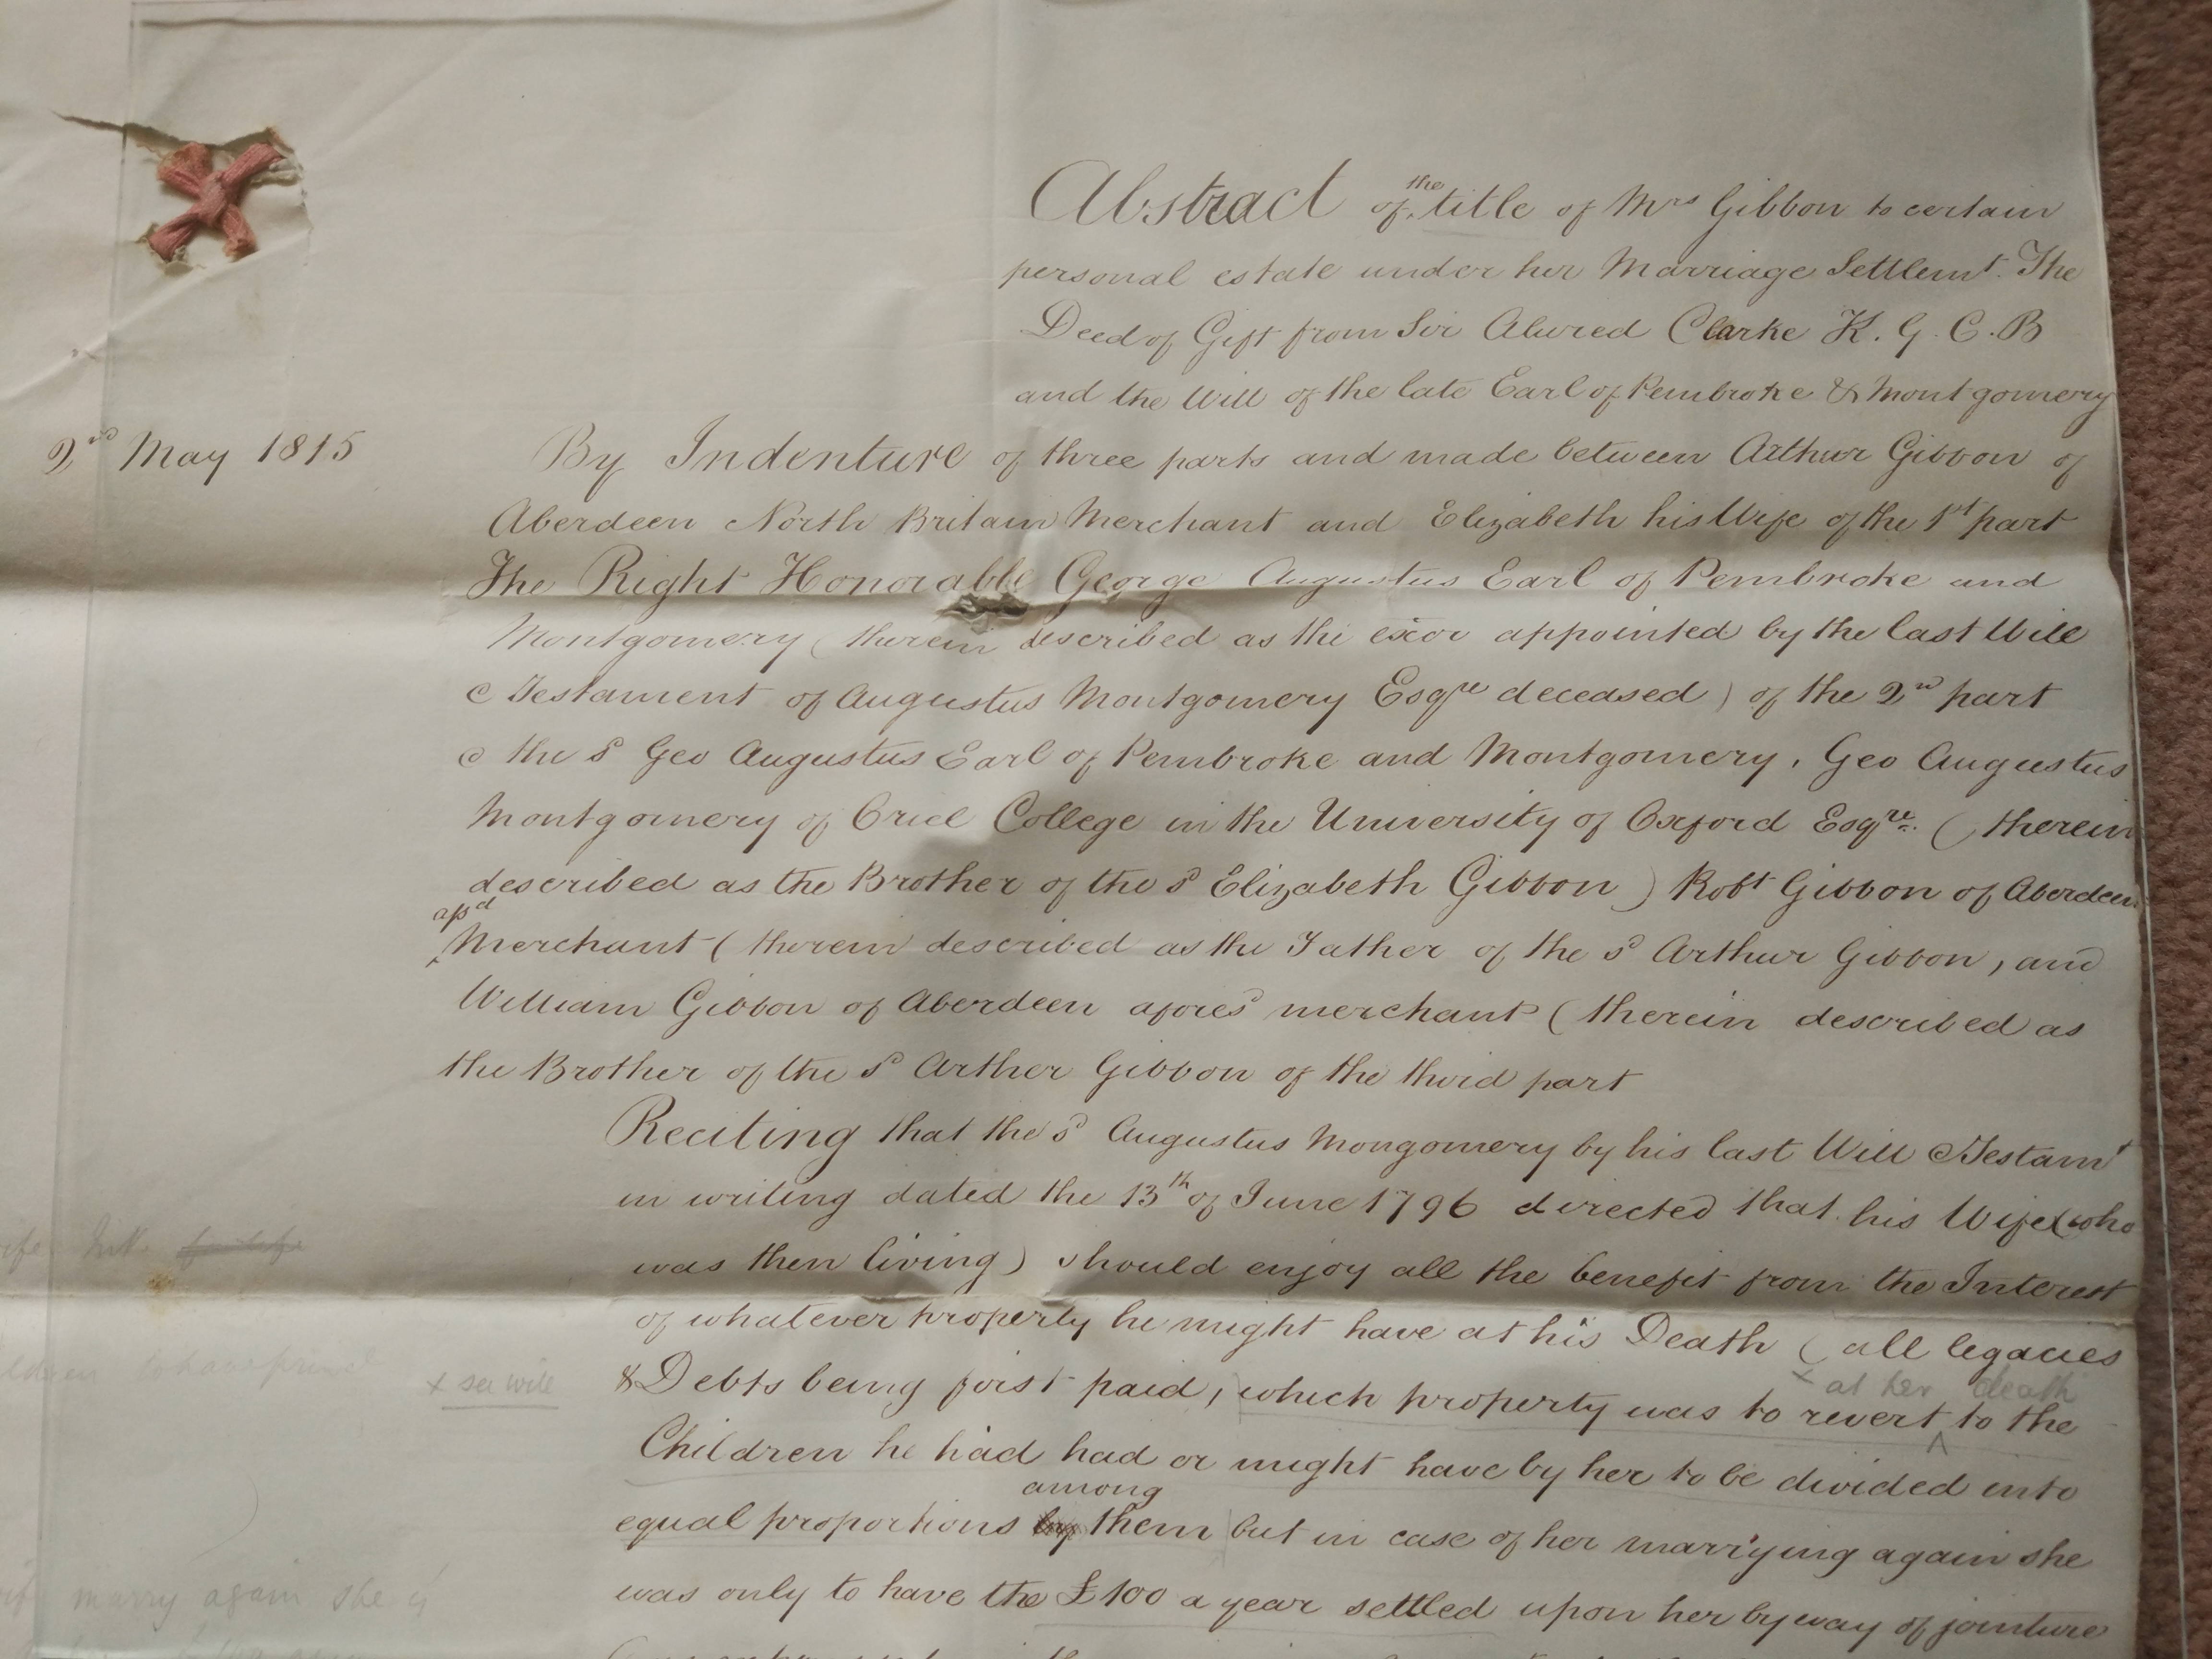 Abstract of the title of Mrs Gibbon to certain
personal estate under her Marriage Settlemt. The
Deed of Gift from Sir Alured Clarke K. G. C. B
and the Will of the late Earl of Pembroke & Montgomery
2nd May 1815
By Indenture of three parts and made between Arthur Gibbon of
Aberdeen North Britain Merchant and Elizabeth his Wife of the 1st part
The Right Honorable George Augustus Earl of Pembroke and
Montgomery (therein described as the exor appointed by the last Will
& Testament of Augustus Montgomery Esqre deceased) of the 2nd part
& the sd Geo Augustus Earl of Pembroke and Montgomery, Geo Augustus
Montgomery of Oriel College in the University of Oxford Esqre. (therein
described as the Brother of the sd Elizabeth Gibbon) Robt Gibbon of Aberdeen
afsd Merchant (therein described as the Father of the sd Arthur Gibbon, and
William Gibbon of Aberdeen aforesd merchant (therein described as
the Brother of the sd Arther Gibbon of the third part
Reciting that the sd Augustus Mongomery by his last Will & Testamt
in writing dated the 13th of June 1796 directed that his Wife (who
was then living) should enjoy all the benefit from the Interest
of whatever property he might have at his Death (all legacies
& Debts being first paid, which property was to revert to the
x at her death
x see will
Children he had had or might have by her to be divided into
equal proportions by among them but in case of her marrying again she
was only to have the £100 a year settled upon her by way of jointure
marry again she